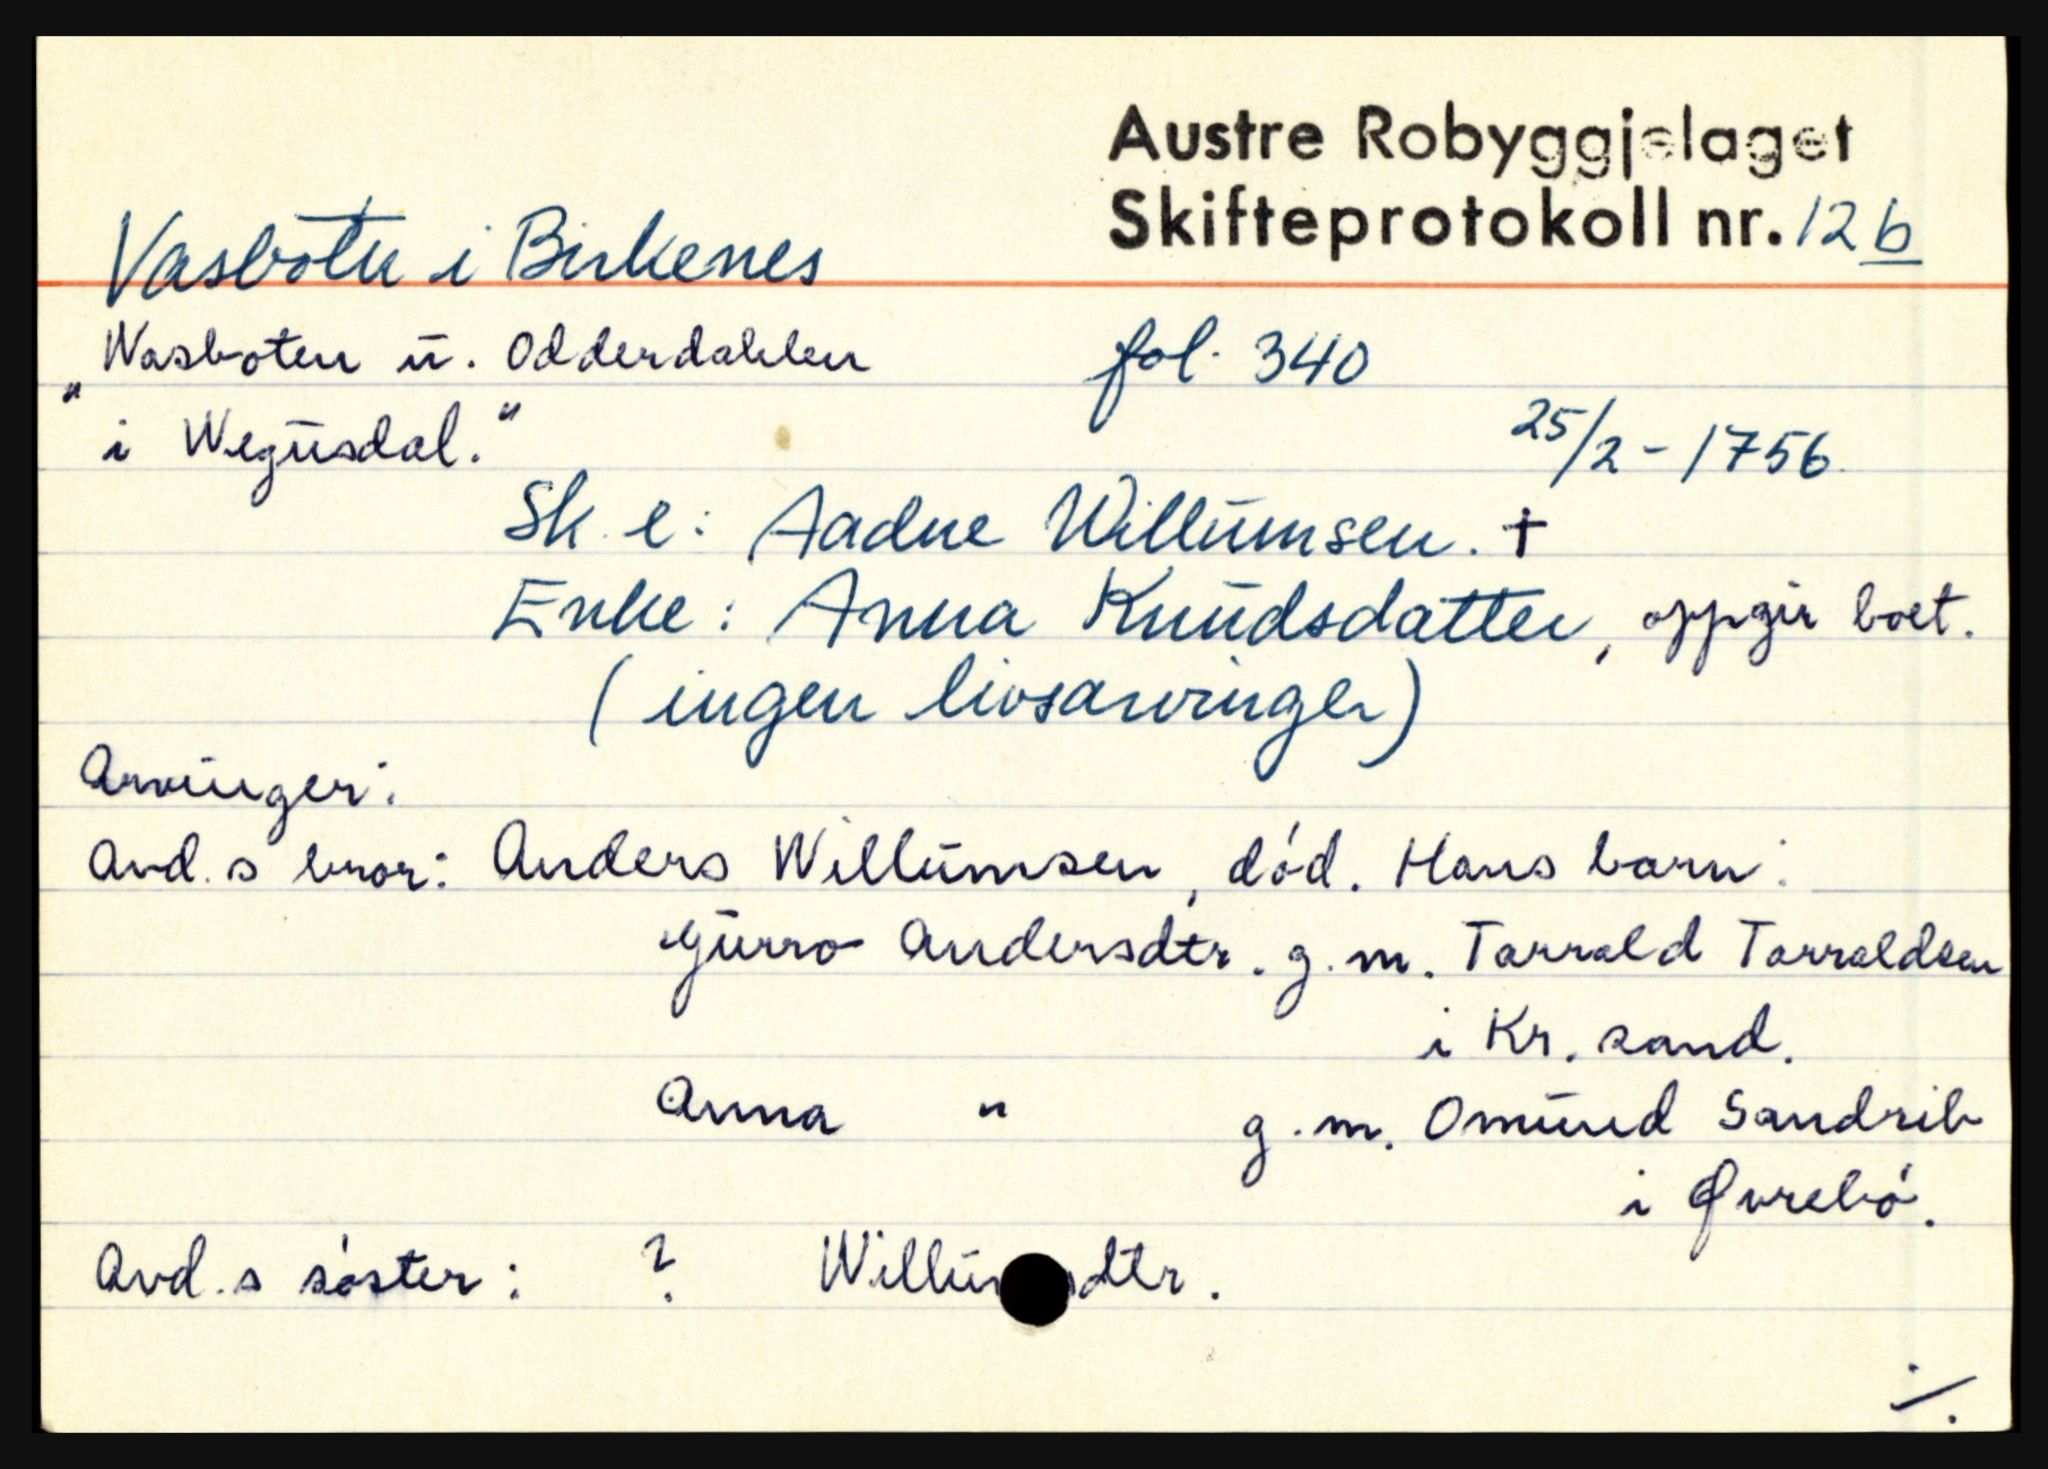 Austre Robyggjelaget
Skifteprotokoll nr. 12 b
Vasbotn i Birkenes
"Wasboten u. Odderdahlen fol. 340
i Wegusdal." 25/2 - 1756.
Sk. e: Aadne Willumsen. †
Enke: Anna Knudsdatter, oppgir boet.
(ingen livsarvinger)
Arvinger:
Avd. s bror: Anders Willumsen, død. Hans barn:
Gurro Andersdtr. g. m. Tarrald Tarraldsen
i Kr. sand.
Anna " g. m. Omund Sandrib
i Øvrebø.
Avd. s søster: ? Willumsdtr.
./.